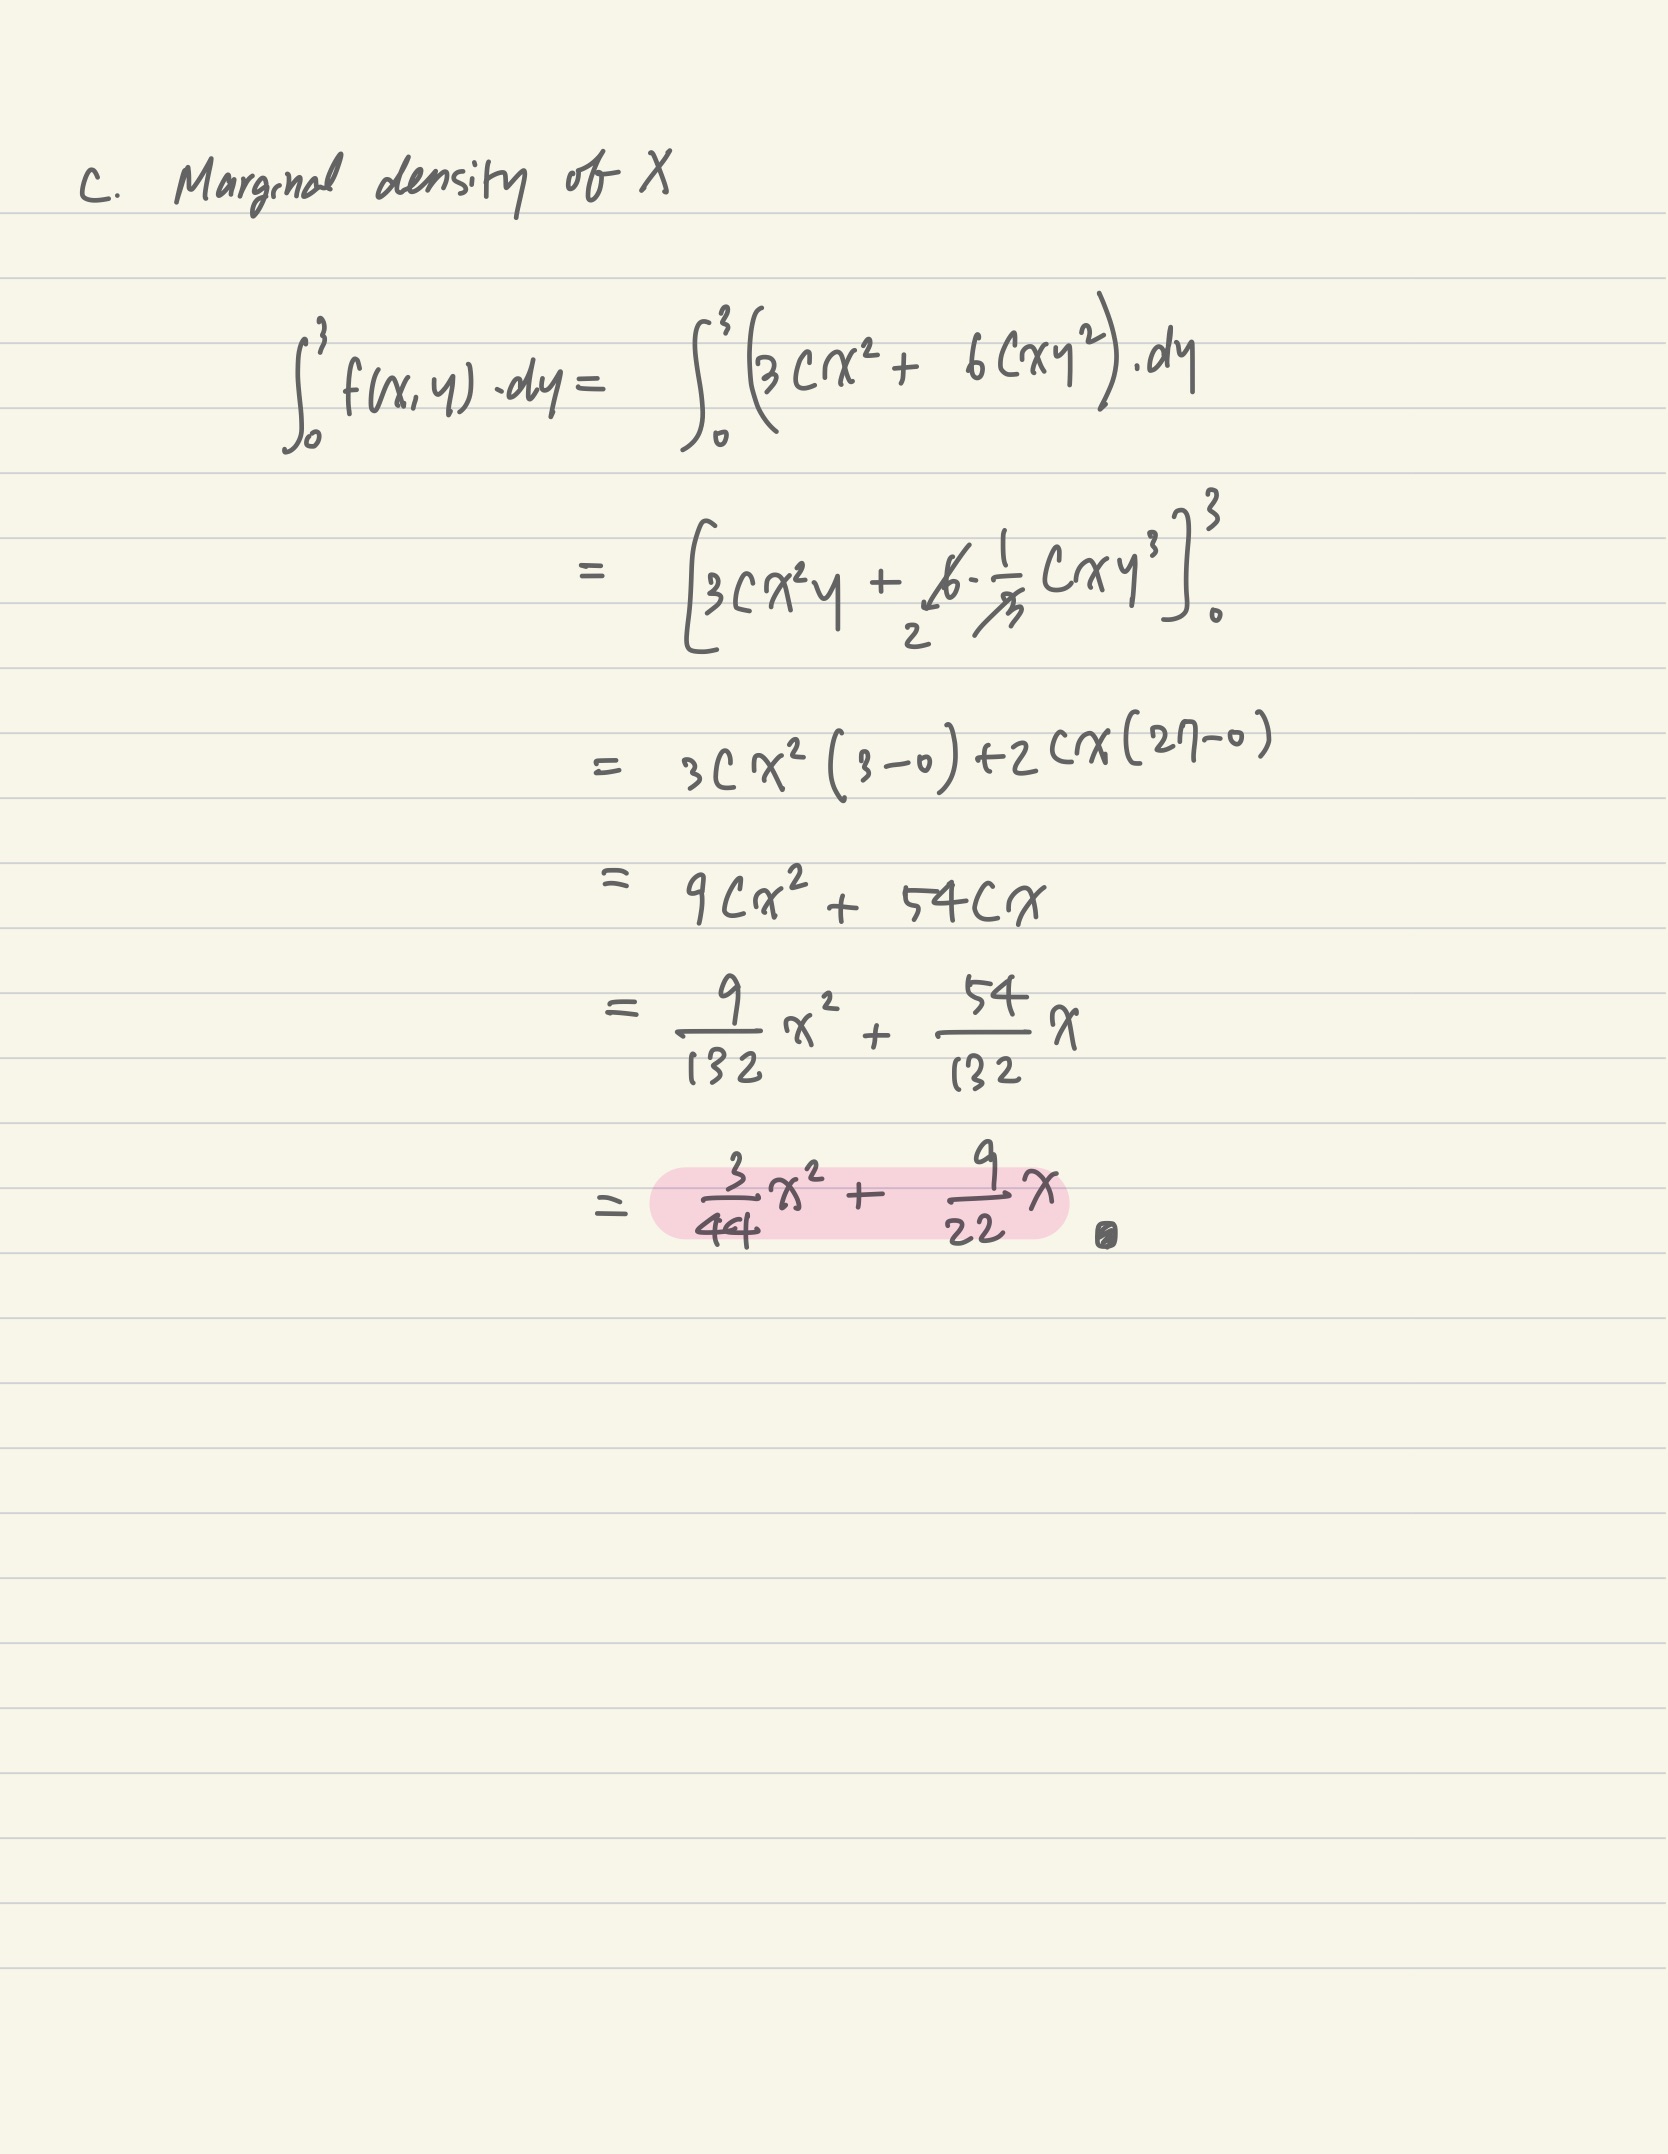 C. Marginal density of X
∫₀³ f(x,y) · dy = ∫₀³ (3Cx² + 6Cxy²) · dy
= [3Cx²y + 6 · 1/3 Cxy³]₀³
2
= 3Cx² (3-0) + 2Cx(27-0)
= 9Cx² + 54Cx
= 9/132 x² + 54/132 x
= 3/44 x² + 9/22 x